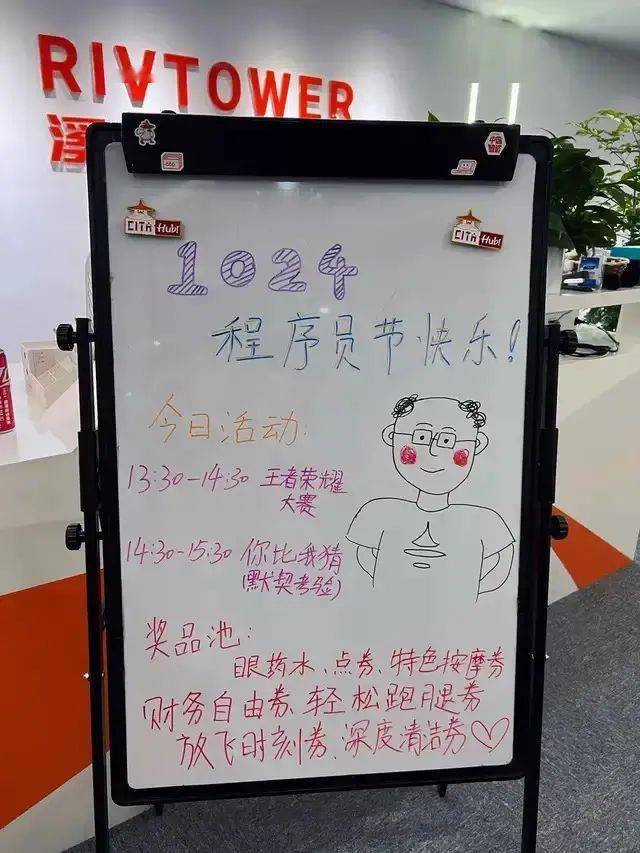 RIVTOWER
溪
CITA Hub!
CITA Hub!
1024
程序员节快乐!
今日活动:
13:30-14:30 王者荣耀
大赛
14:30-15:30 你比我猜
(默契考验)
奖品池:
眼药水、点券、特色按摩券
财务自由券、轻松跑腿券
放飞时刻券、深度清洁券♡